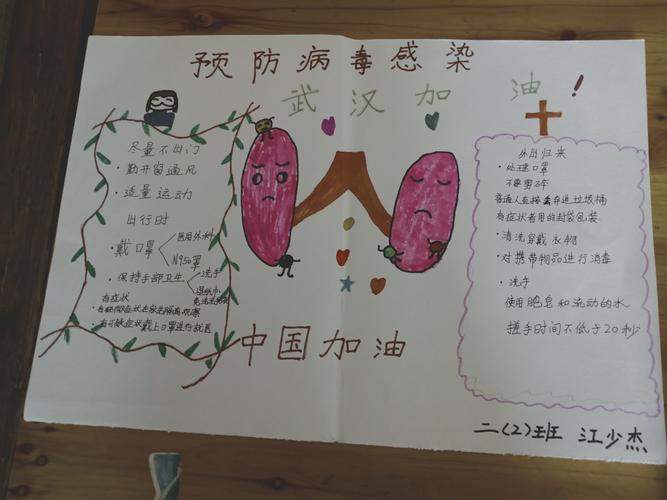 预防病毒感染
武汉加油!
尽量不出门
·勤开窗通风
·适量运动
出行时
·戴口罩
医用外科
N95罩
·保持手部卫生
洗手
湿纸巾
有症状
戴上口罩进行就医
中国加油
外出归来
·处理口罩
不要剪碎
普通人直接丢弃进垃圾桶
有症状者用的封袋包装
·清洗穿戴衣物
·对携带物品进行消毒
·洗手
使用肥皂和流动的水
搓手时间不低于20秒
二(2)班 江少杰